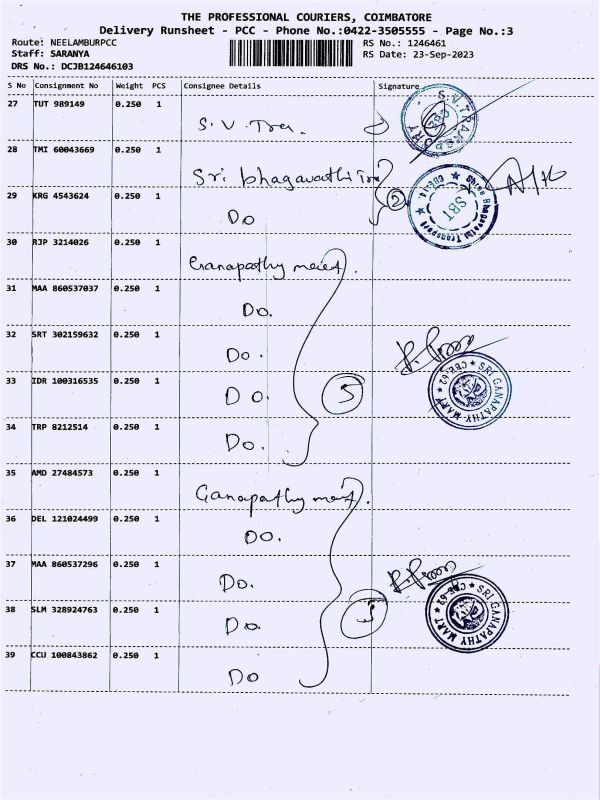 THE PROFESSIONAL COURIERS, COIMBATORE
Delivery Runsheet - PCC - Phone No.:0422-3505555 - Page No.:3
Route: NEELAMBURPCC
RS No.: 1246461
Staff: SARANYA
RS Date: 23-Sep-2023
DRS No.: DCJB124646103
S No Consignment No Weight PCS Consignee Details Signature
27 TUT 989149 0.250 1
S.V. Tra.
S.V.TRANSPORT
28 TMI 60043669 0.250 1
Sri bhagavathi Tra
29 KRG 4543624 0.250 1
Do
2
Sree Bhagavathi Transport
CBE-14
SBT
30 RJP 3214026 0.250 1
Ganapathy
31 MAA 860537037 0.250 1
Do.
32 SRT 302159632 0.250 1
Do.
33 IDR 100316535 0.250 1
Do.
5
SRI GANAPATHY MART
CBE-62
34 TRP 8212514 0.250 1
Do.
35 AMD 27484573 0.250 1
Ganapathy
36 DEL 121024499 0.250 1
Do.
37 MAA 860537296 0.250 1
Do.
38 SLM 328924763 0.250 1
Do.
5
SRI GANAPATHY MART
CBE-62
39 CCU 100843862 0.250 1
Do